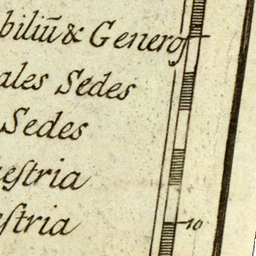 biliū & Generoſ
ales Sedes
Sedes
eſtria
eſtria
10